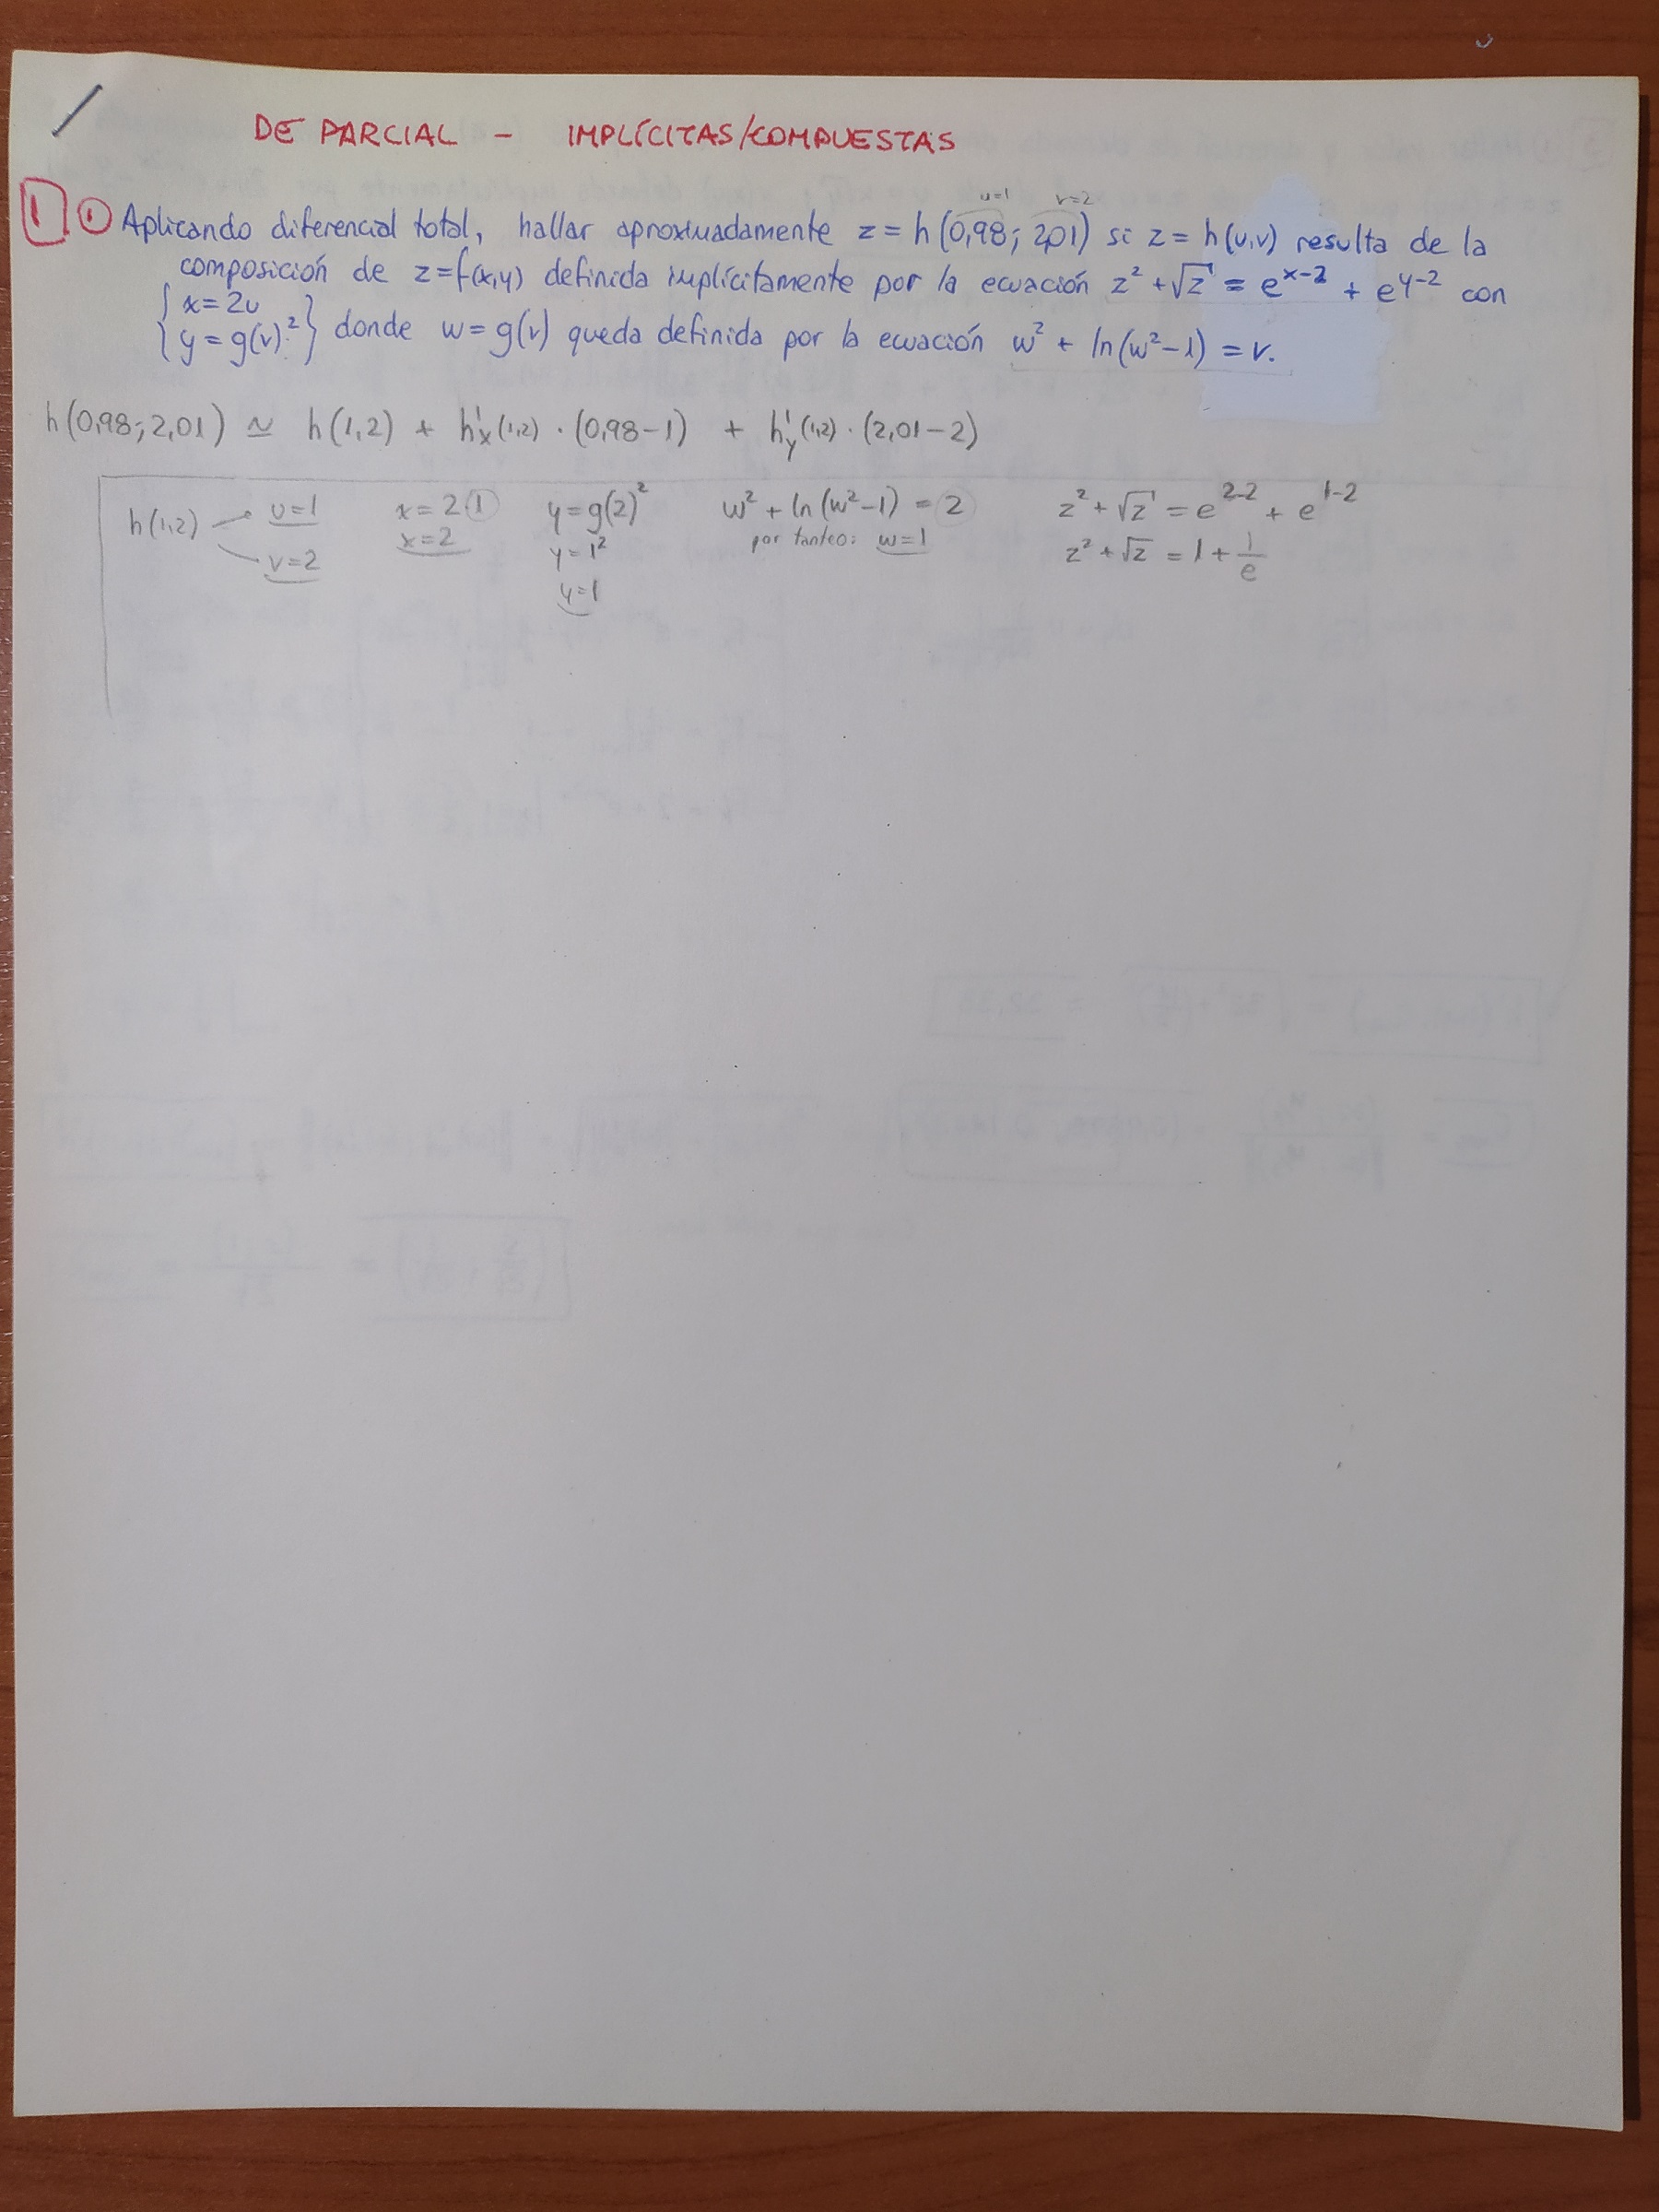 DE PARCIAL - IMPLÍCITAS/COMPUESTAS
u=1 v=2
1 ① Aplicando diferencial total, hallar aproximadamente z = h(0,98; 2,01) si z = h(u,v) resulta de la
composición de z=f(x,y) definida implícitamente por la ecuación z² + √z = e^(x-2) + e^(y-2) con
{ x=2u
{ y=g(v)² } donde w=g(v) queda definida por la ecuación w² + ln(w²-1) = v.
h(0,98; 2,01) ≃ h(1,2) + h'x(1,2) · (0,98-1) + h'y(1,2) · (2,01-2)
h(1,2) u=1 x=2① y=g(2)² w² + ln(w²-1) = 2 z² + √z = e^(2-2) + e^(1-2)
v=2 x=2 y=1² por tanteo: w=1 z² + √z = 1 + 1/e
y=1